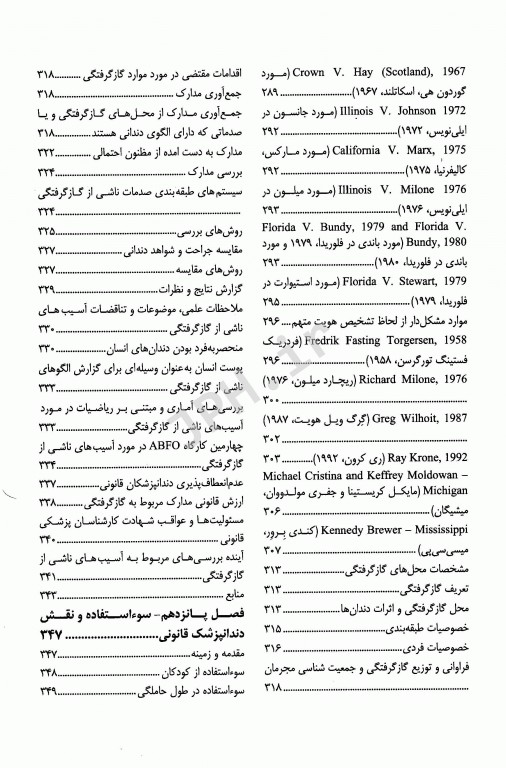 Crown V. Hay (Scotland), 1967 (مورد
گوردون هی، اسکاتلند، ۱۹۶۷)......۲۸۹
Illinois V. Johnson 1972 (مورد جانسون در
ایلی‌نویس، ۱۹۷۲)......۲۹۲
California V. Marx, 1975 (مورد مارکس،
کالیفرنیا، ۱۹۷۵)......۲۹۲
Illinois V. Milone 1976 (مورد میلون در
ایلی‌نویس، ۱۹۷۶)......۲۹۳
Florida V. Bundy, 1979 and Florida V.
Bundy, 1980 (مورد باندی در فلوریدا، ۱۹۷۹ و مورد
باندی در فلوریدا، ۱۹۸۰)......۲۹۳
Florida V. Stewart, 1979 (مورد استیوارت در
فلوریدا، ۱۹۷۹)......۲۹۵
موارد مشکل‌دار از لحاظ تشخیص هویت متهم....۲۹۶
Fredrik Fasting Torgersen, 1958 (فردریک
فستینگ تورگرسن، ۱۹۵۸)......۲۹۶
Richard Milone, 1976 (ریچارد میلون، ۱۹۷۶)
......۳۰۰
Greg Wilhoit, 1987 (گرگ ویل هویت، ۱۹۸۷)
......۳۰۲
Ray Krone, 1992 (ری کرون، ۱۹۹۲)......۳۰۳
Michael Cristina and Keffrey Moldowan –
Michigan (مایکل کریستینا و جفری مولدووان،
میشیگان)......۳۰۶
Kennedy Brewer – Mississippi (کندی برور،
میسی‌سی‌پی)......۳۰۷
مشخصات محل‌های گازگرفتگی......۳۱۳
تعریف گازگرفتگی......۳۱۳
محل گازگرفتگی و اثرات دندان‌ها......۳۱۳
خصوصیات طبقه‌بندی......۳۱۵
خصوصیات فردی......۳۱۶
فراوانی و توزیع گازگرفتگی و جمعیت شناسی مجرمان
......۳۱۸
اقدامات مقتضی در مورد موارد گازگرفتگی......۳۱۸
جمع‌آوری مدارک......۳۱۸
جمع‌آوری مدارک از محل‌های گازگرفتگی و یا
صدماتی که دارای الگوی دندانی هستند......۳۱۸
مدارک به دست امده از مظنون احتمالی......۳۲۲
بررسی مدارک......۳۲۴
سیستم‌های طبقه‌بندی صدمات ناشی از گازگرفتگی
......۳۲۴
روش‌های بررسی......۳۲۵
مقایسه جراحت و شواهد دندانی......۳۲۷
روش‌های مقایسه......۳۲۷
گزارش نتایج و نظرات......۳۲۹
ملاحظات علمی، موضوعات و تناقضات آسیب‌های
ناشی از گازگرفتگی......۳۳۰
منحصربه‌فرد بودن دندان‌های انسان......۳۳۰
پوست انسان به‌عنوان وسیله‌ای برای گزارش الگوهای
ناشی از گازگرفتگی......۳۳۳
بررسی‌های آماری و مبتنی بر ریاضیات در مورد
آسیب‌های ناشی از گازگرفتگی......۳۳۳
چهارمین کارگاه ABFO در مورد آسیب‌های ناشی از
گازگرفتگی......۳۳۴
عدم‌انعطاف‌پذیری دندانپزشکان قانونی......۳۳۷
ارزش قانونی مدارک مربوط به گازگرفتگی......۳۳۸
مسئولیت‌ها و عواقب شهادت کارشناسان پزشکی
قانونی......۳۴۰
آینده بررسی‌های مربوط به آسیب‌های ناشی از
گازگرفتگی......۳۴۱
منابع......۳۴۳
فصل پانزدهم– سوءاستفاده و نقش
دندانپزشک قانونی......۳۴۷
مقدمه و زمینه......۳۴۷
سوءاستفاده از کودکان......۳۴۸
سوءاستفاده در طول حاملگی......۳۴۹
JPH.ir